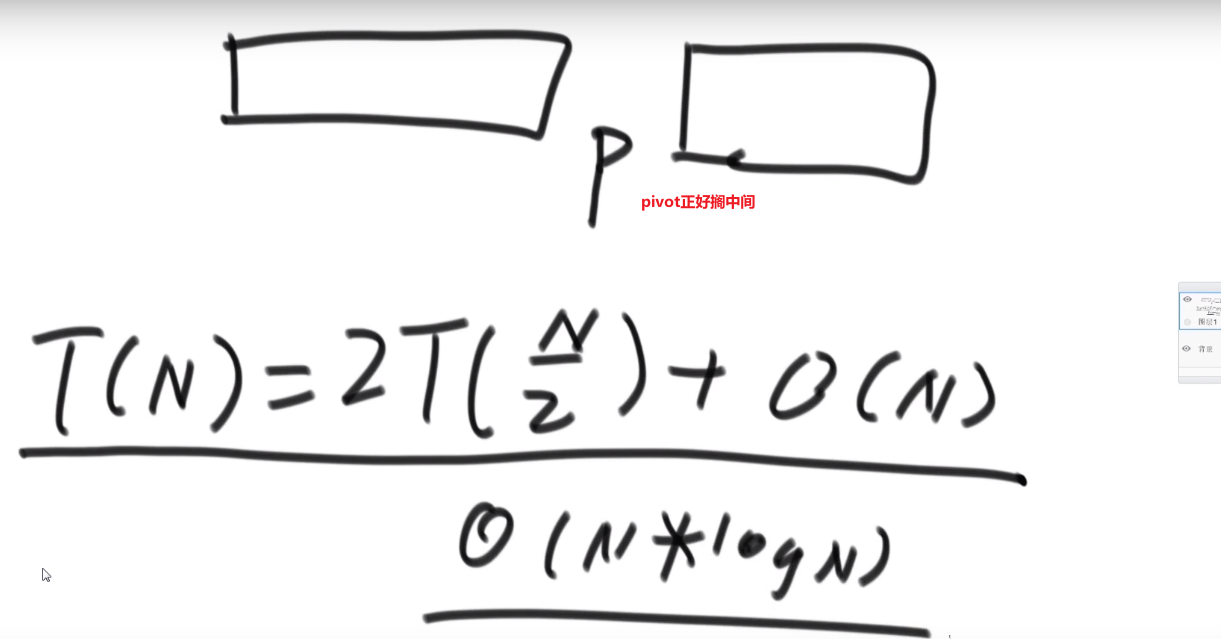 P
pivot正好搁中间
T(N)=2T(N/2)+O(N)
O(N*logN)
图层1
背景